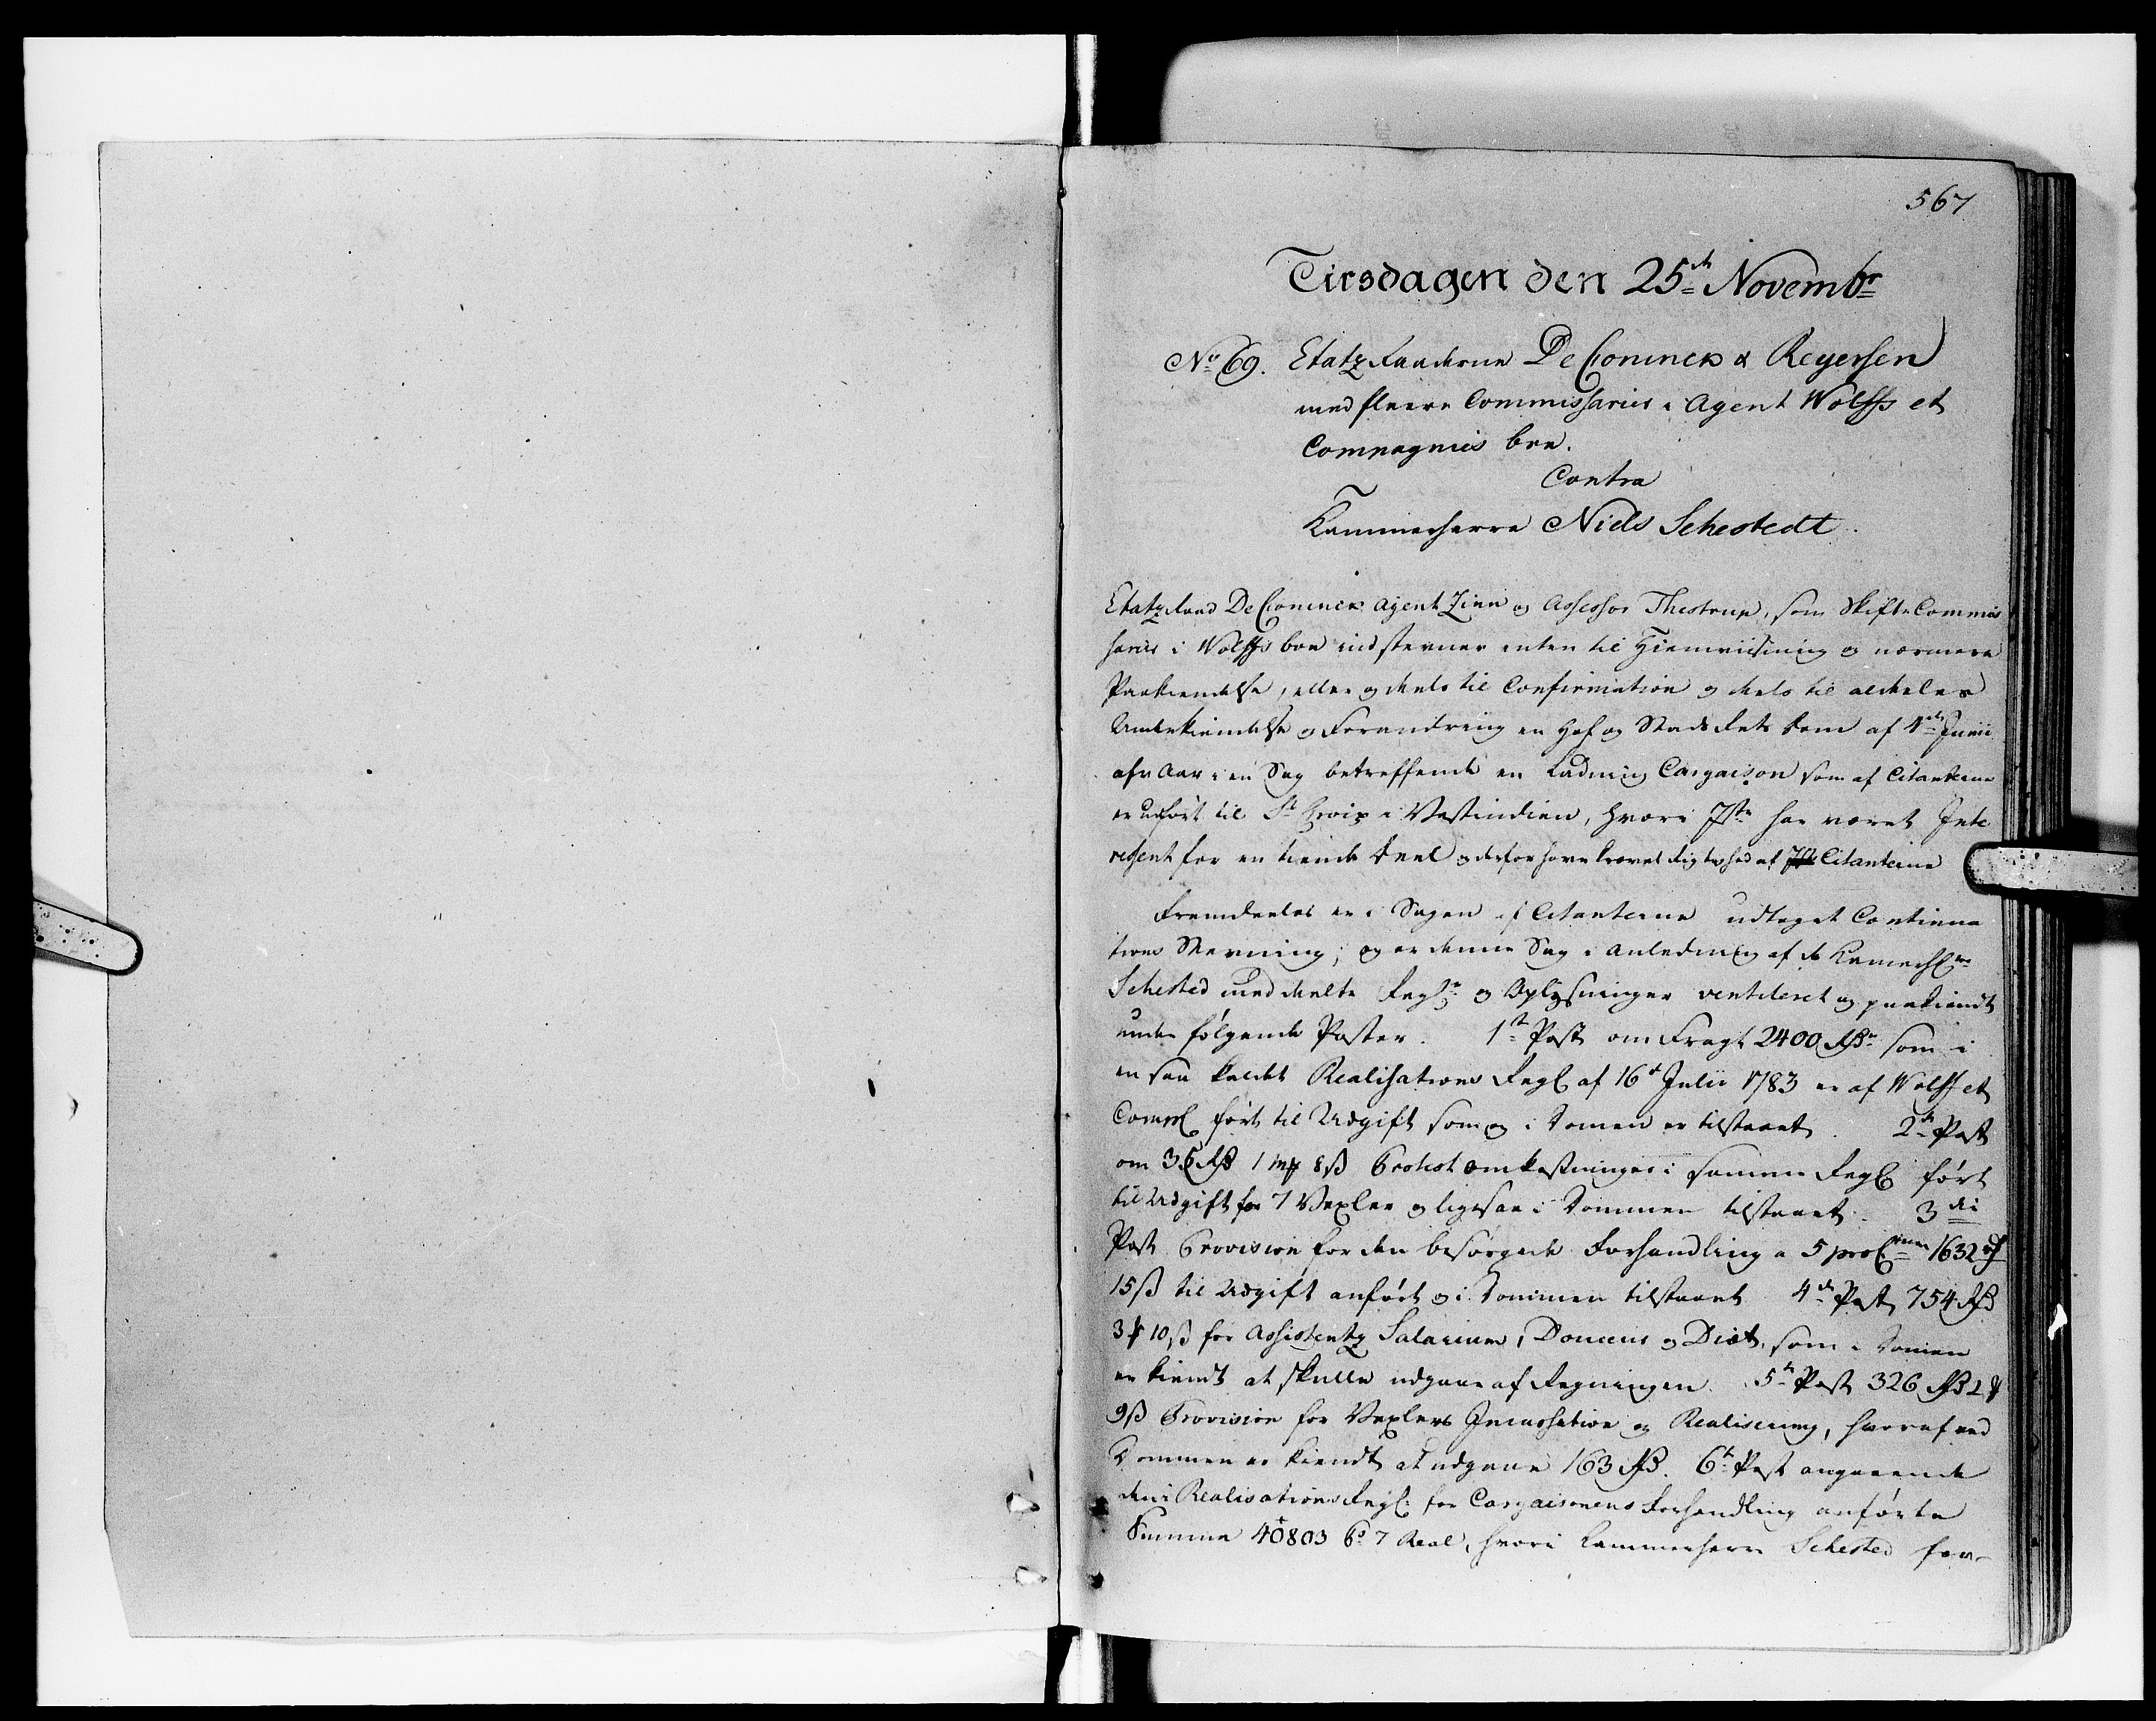 567
Tirsdagen den 25de Novembr
No 69. Etatz Raaderne De Coninck & Reyersen
med fleere Commissarier i Agent Wolffs et
Compagnies boe.
Contra
Kammerherre Niels Sehestedt.
Etatz Raad De Coninck Agent Zinn og Assessor Thestrup, som Skifte Commis
sarier i Wolffs boe indstevner enten til Hiemviisning og nærmere
Paakiendelse, eller og deels til Confirmation og deels til aldeles
Underkiendelse og Forandring en Hof og Stads Rets Dom af 4de Junii
afv. Aar i en Sag betreffende en Ladning Cargaison som af Citanterne
er udført til St Croix i Vestindien, hvori Jste har været Inte
ressent for en tiende Deel og derfor have krævet Rigtighed af Citanterne
Fremdeeles er i Sagen af Citanterne udtaget Continua
tions Stevning; og er denne Sag i Anledning af de Kammerhre
Sehested meddeelte Regl og Oplysninger ventileret og paakiendt
under følgende Poster. 1te Post om Fragt 2400 Rdr som i
en saa kaldet Realisations Regl af 16de Julii 1783 er af Wolff et
Comp ført til Udgift som og i Domen er tilstaaet. 2de Post
om 35 Rd 1 mk 8 ß Protest omkostninger i samme Regl ført
til Udgift for 7 Vexler og ligesaa i Dommen tilstaaet. 3die
Post Provision for den besørgede Forhandling a 5 proCent 1632 rd
15 ß til Udgift anført og i Dommen tilstaaet 4de Post 754 Rd
3 mk 10 ß for Assistentz Salarium, Douceur og Diæt, som i Domen
er kiendt at skulle udgaae af Regningen. 5te Post 326 Rd 2 mk
9 ß Provision for Vexlers Incassation og Realisering, hvoraf ved
Dommen er kiendt at udgaae 163 Rd. 6te Post angaaende
den i Realisations Regl: for Cargaisonens Forhandling anførte
Summa 40803 Ps 7 Real, hvori Kammerherre Sehested for-